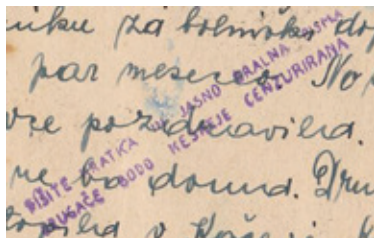 niku za bolniško do
par mesecev No
vže pozdravila.
ne bo doma. Dru
topila v
PIŠITE KRATKA JASNO BRALNA PISMA
DRUGAČE BODO KESNEJE CENZURIRANA